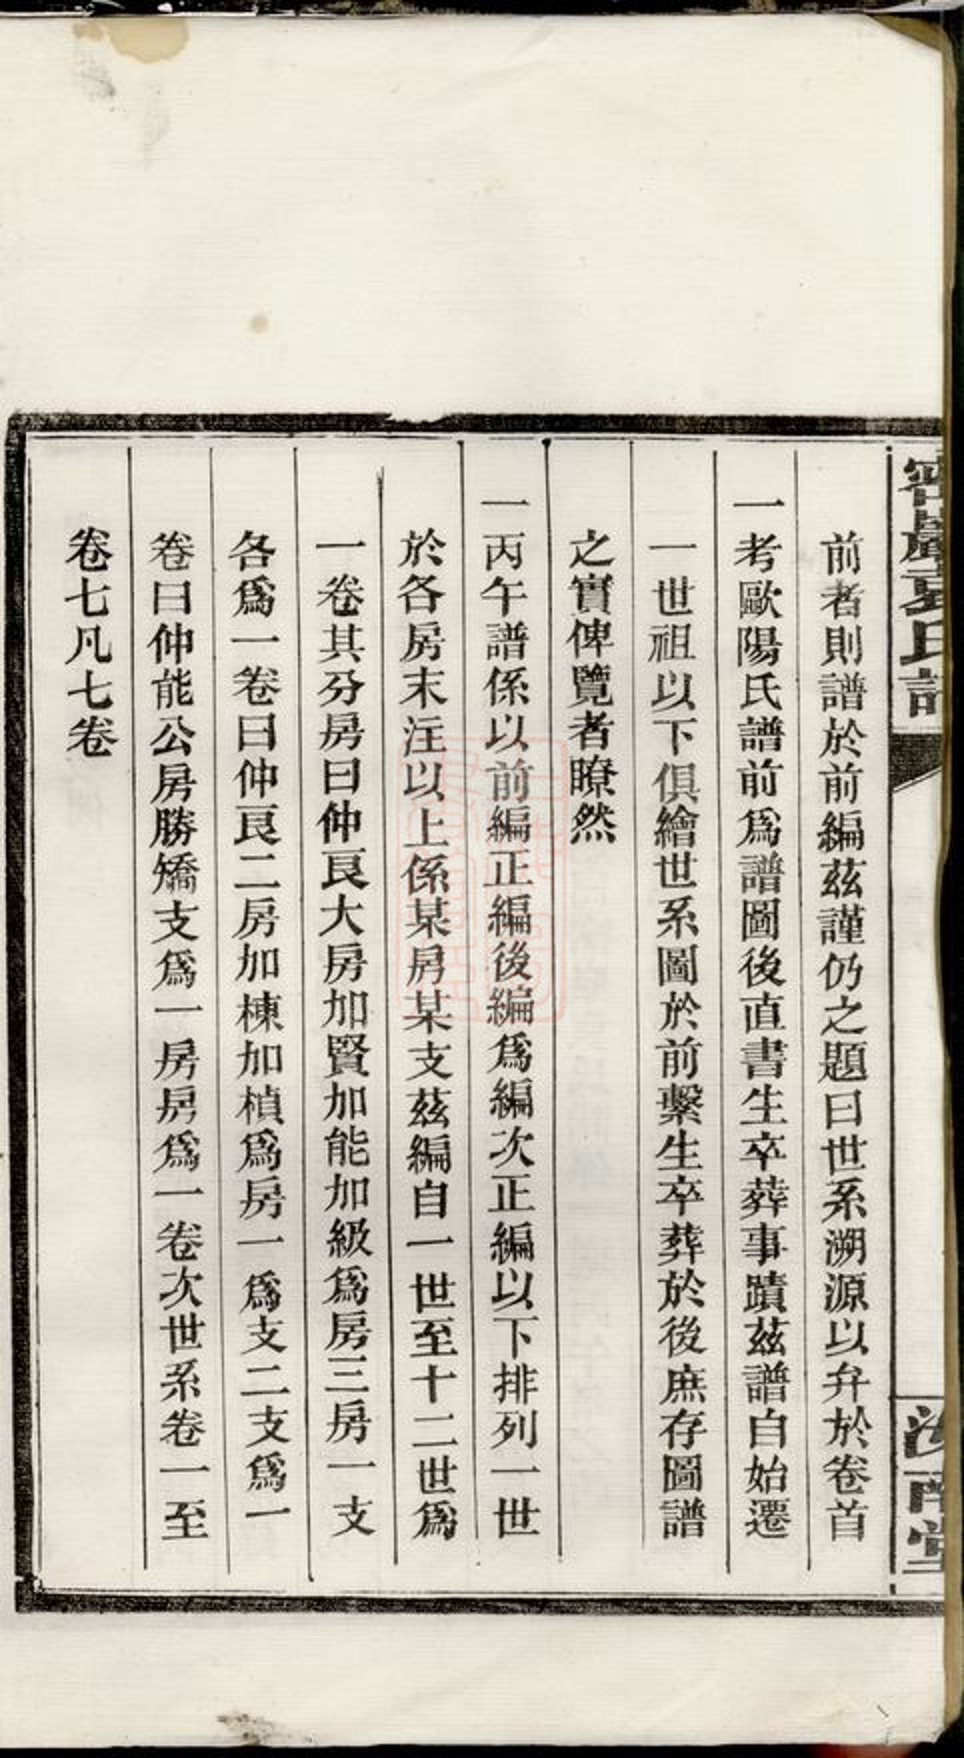 前者則譜於前編茲謹仍之題曰世系溯源以弁於卷首
一考歐陽氏譜前爲譜圖後直書生卒葬事蹟茲譜自始遷
一世祖以下俱繪世系圖於前繫生卒葬於後庶存圖譜
之實俾覽者瞭然
一丙午譜係以前編正編後編爲編次正編以下排列一世
於各房末注以上係某房某支茲編自一世至十二世爲
一卷其分房曰仲良大房加賢加能加級爲房三房一支
各爲一卷曰仲良二房加棟加楨爲房一爲支二支爲一
卷曰仲能公房勝矯支爲一房房爲一卷次世系卷一至
卷七凡七卷
氏譜
南堂